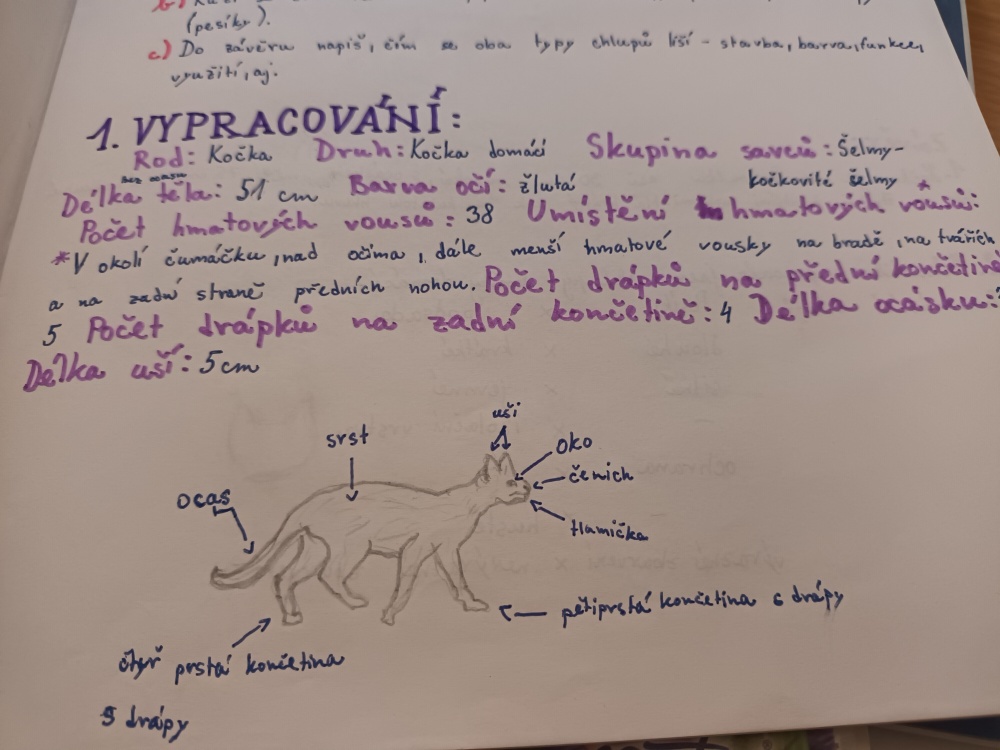 (pesíky).
c) Do závěru napiš, čím se oba typy chlupů liší - stavba, barva, funkce,
využití, aj.
1. VYPRACOVÁNÍ:
Rod: Kočka Druh: Kočka domácí Skupina savců: Šelmy-
kočkovité šelmy
bez ocasu
Délka těla: 51 cm Barva očí: žlutá
Počet hmatových vousů: 38 Umístění hmatových vousů: *
*V okolí čumáčku, nad očima, dále menší hmatové vousky na bradě, na tvářích
a na zadní straně předních nohou. Počet drápků na přední končetině
5 Počet drápků na zadní končetině: 4 Délka ocásku:
Délka uší: 5 cm
uši
srst
oko
čenich
ocas
tlamička
pětiprstá končetina s drápy
čtyř prstá končetina
s drápy